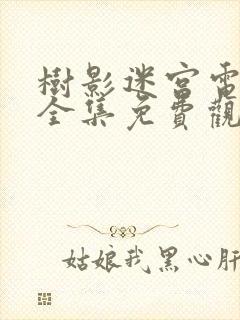 樹影迷宮電
全集免費觀
姑娘我黑心肝